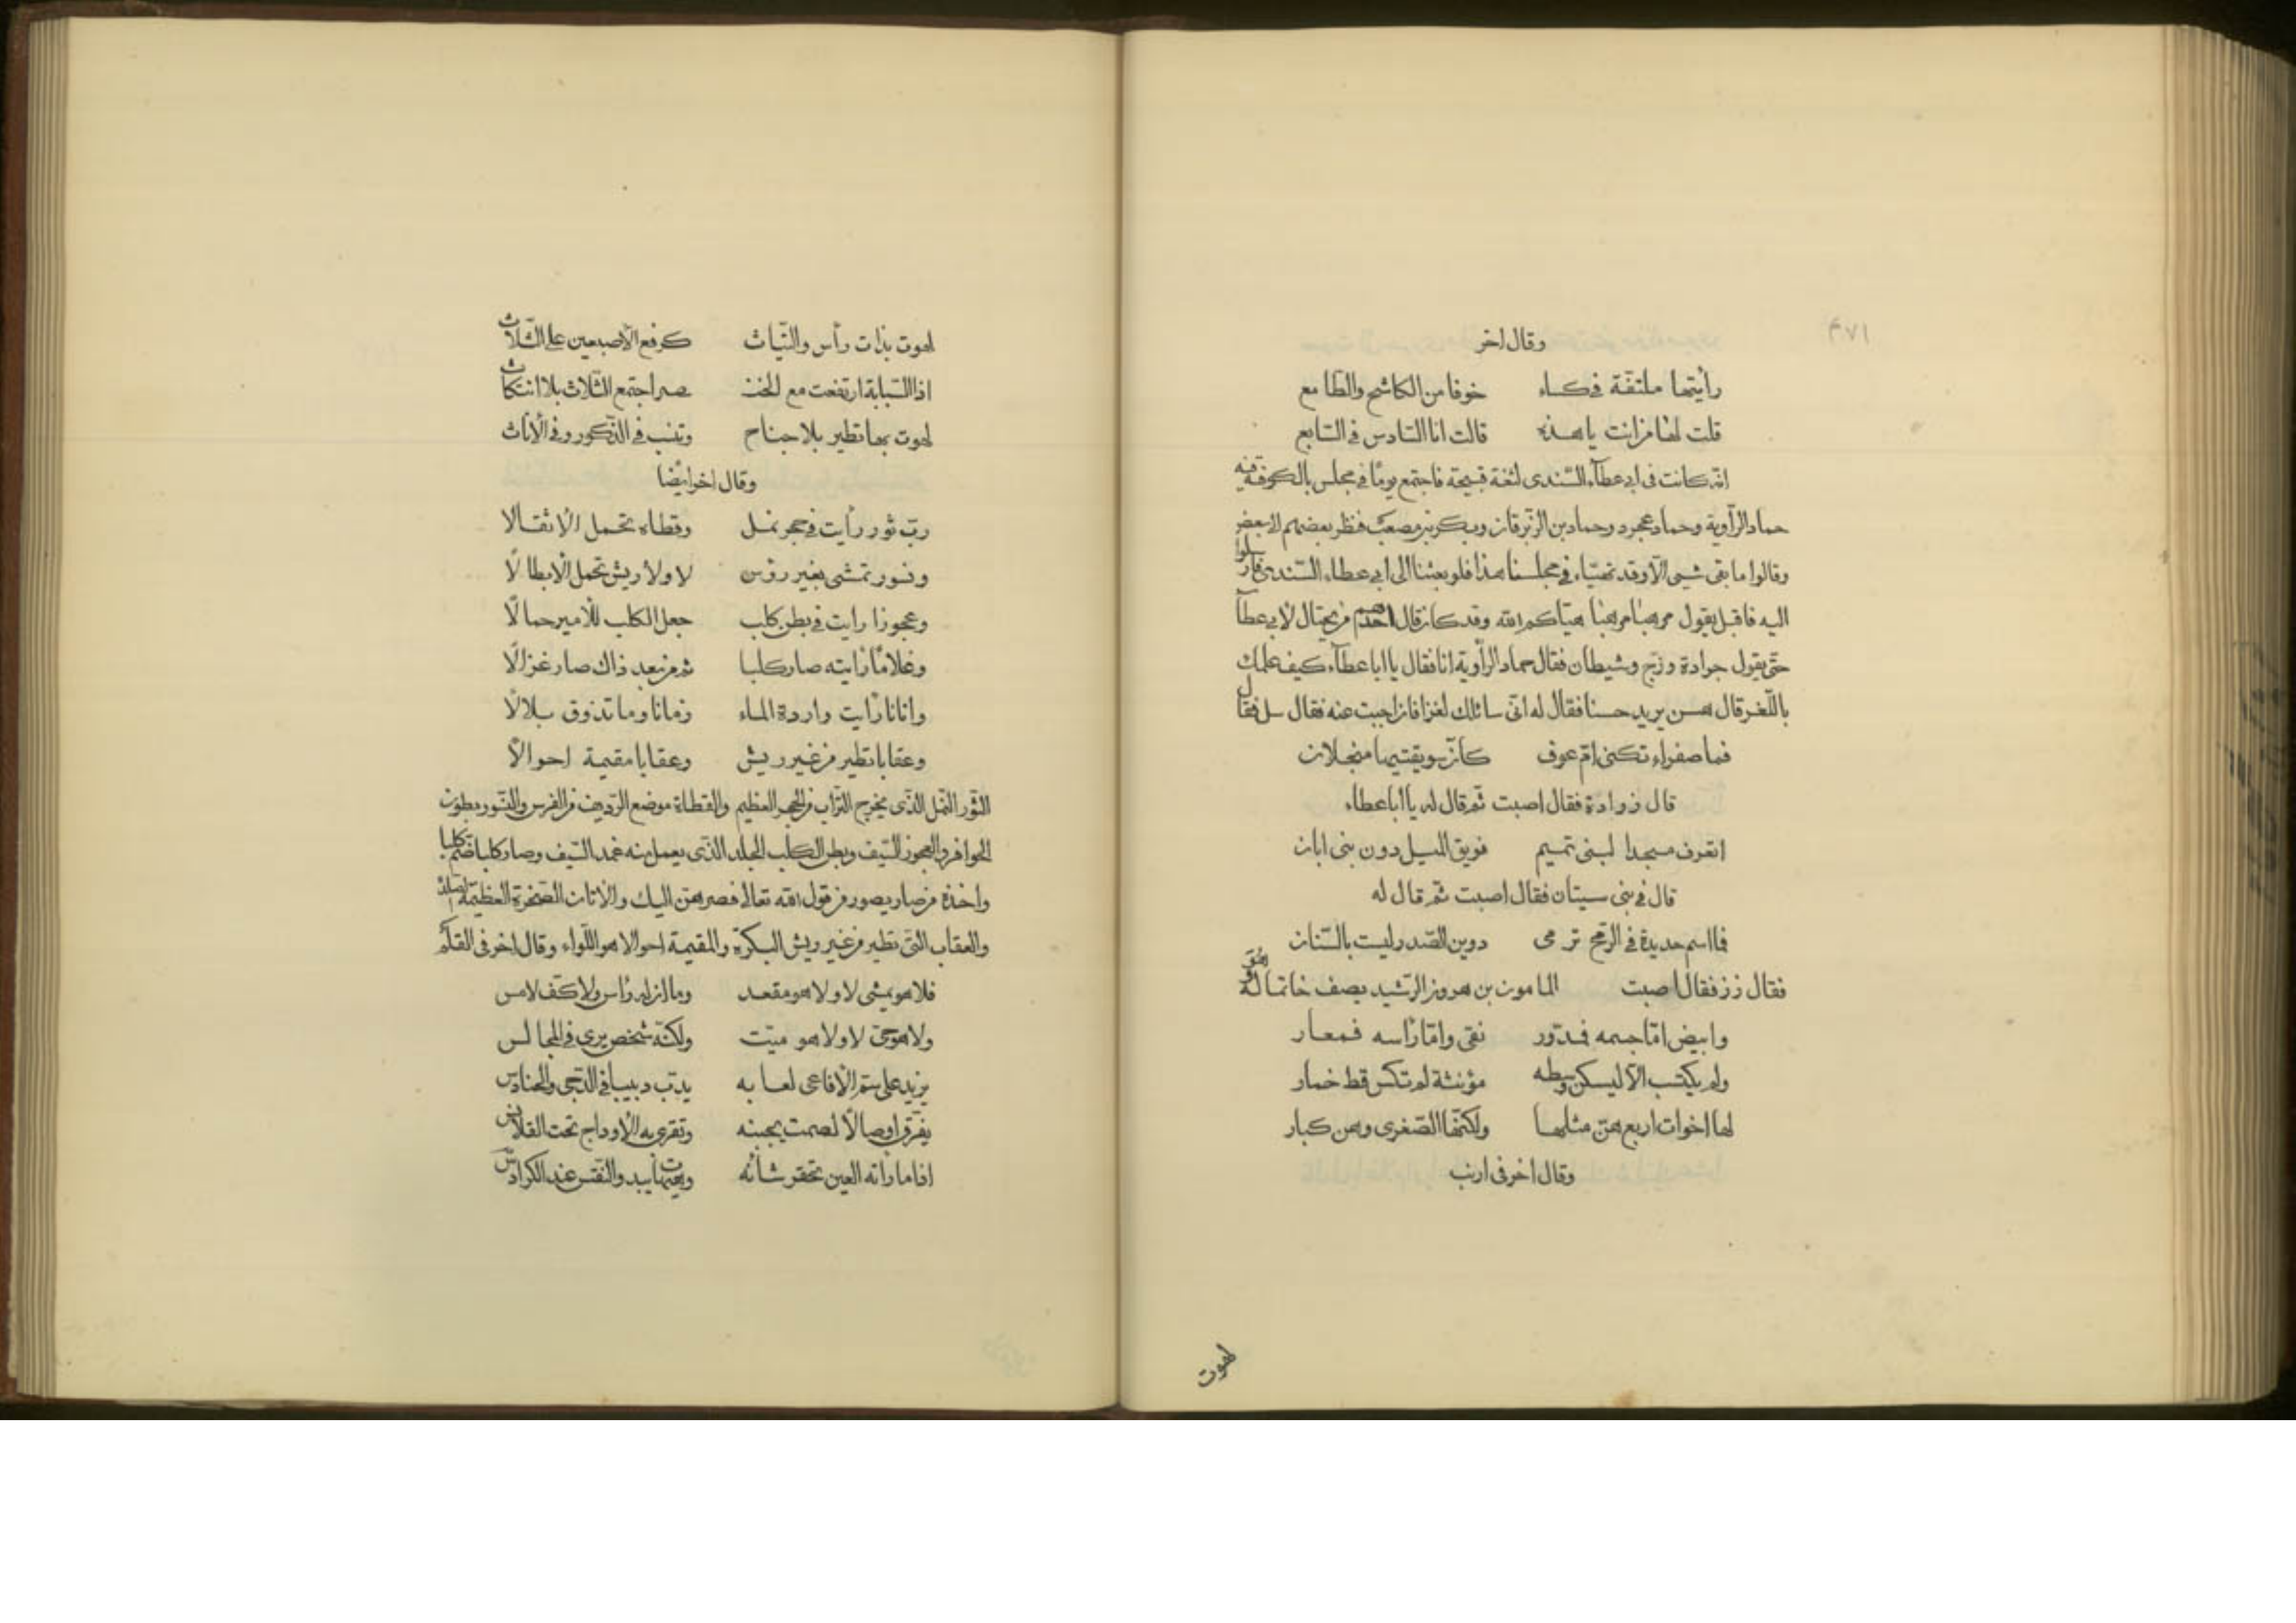 ١٧٩
وقال اخر
رأيتها ملتفّة في كساء خوفا من الكاشح والطامع
قلت لها من انت يا هذه قالت انا السّادس في السّابع
انّه كانت في ابي عطآء السّندى لثغة قبيحة فاجتمع يومًا في مجلس بالكوفة فيه
حماد الرّاوية وحماد عجرد وحماد بن الزّبرقان وبكر بن مصعب فنظر بعضهم لابعض
وقالوا ما بقى شىء الّا وقد تهيّاء في مجلسنا هذا فلو بعثنا الى ابي عطاء السّندى فارسلوا
اليه فاقبل يقول مرهبًا مرهبًا هيّاكم الله وقد كان قال احدهم من يحتال لابي عطآ
حتّى يقول جرادة وزجّ وشيطان فقال حماد الرّاوية انا فقال يا ابا عطآء كيف علمك
باللّغز قال هسن يريد حسنا فقال له انّى سائلك لغزا فان اجبت عنه فقال سل فقال
فما صفراء تكنى امّ عوف كأنّ سويقتيها منجلان
قال زرادة فقال اصبت ثمّ قال له يا ابا عطاء
اتعرف مسجدا لبنى تميم فويق الميل دون بنى ابان
قال في بنى سيتان فقال اصبت ثمّ قال له
فما اسم حديدة في الرّمح ترمى دوين الصّدر ليست بالسّنان
فقال زز فقال اصبت المامون بن هرون الرّشيد يصف خاتما له
وابيض امّا جسمه فمدوّر نقى وامّا رأسه فمعار
ولم يكتسب الّا ليسكن وسطه مؤنثة لم تكس قط خمار
لها اخوات اربع هنّ مثلها ولكنّها الصّغرى وهن كبار
وقال اخر في ارنب
لهوت
لهوت بذات رأس والتياث كرفع الأصبعين على الثّلاث
اذا السّبّابة ارتفعت مع الخنـ ـصر اجتمع الثّلاث بلا انتكاث
لهوت بها تطير بلا جناح وتنسب في الذّكور وفي الأناث
وقال اخر ايضًا
ربّ ثور رأيت في جحر نمل وقطاه تحمل الأثقالا
ونسور تمشى بغير رؤس لا ولا ريش تحمل الأبطالًا
وعجوزا رايت في بطن كلب جعل الكلب للأمير حمالًا
وغلامًا رايته صار كلبا ثم من بعد ذاك صار غزالًا
واتانا رأيت واردة الماء زمانا وما تذوق بلالًا
وعقابا تطير من غير ريش وعقابا مقيمة احوالًا
الثّور النّمل الّذى يخرج التّراب من الجحر العظيم والقطاة موضع الرّديف من الفرس والنّسور بطون
الحوافر والعجوز السّيف وبطن الكلب الجلد الّذى يعمل منه غمد السّيف وصار كلبا ضمّ كلبا
واخذه من صار يصور من قول الله تعالى فصرهنّ اليك والاتان الصّخرة العظيمة
والعقاب الّتى تطير من غير ريش البكرة والمقيمة احوالا هو اللّواء وقال اخر في القلم
فلا هو يمشى لا ولا هو مقعد وما ان له رأس ولا كفّ لامس
ولا هو حىّ لا ولا هو ميّت ولكنّه شخص يرى في المجالس
يزيد على سمّ الأفاعى لعابه يدبّ دبيبا في الدّجى والحنادس
يفرّق اوصالًا لصمت يجبنه وتفرى به الأوداج تحت القلانس
اذا ما رأته العين تحقر شأنه عند الكرادس